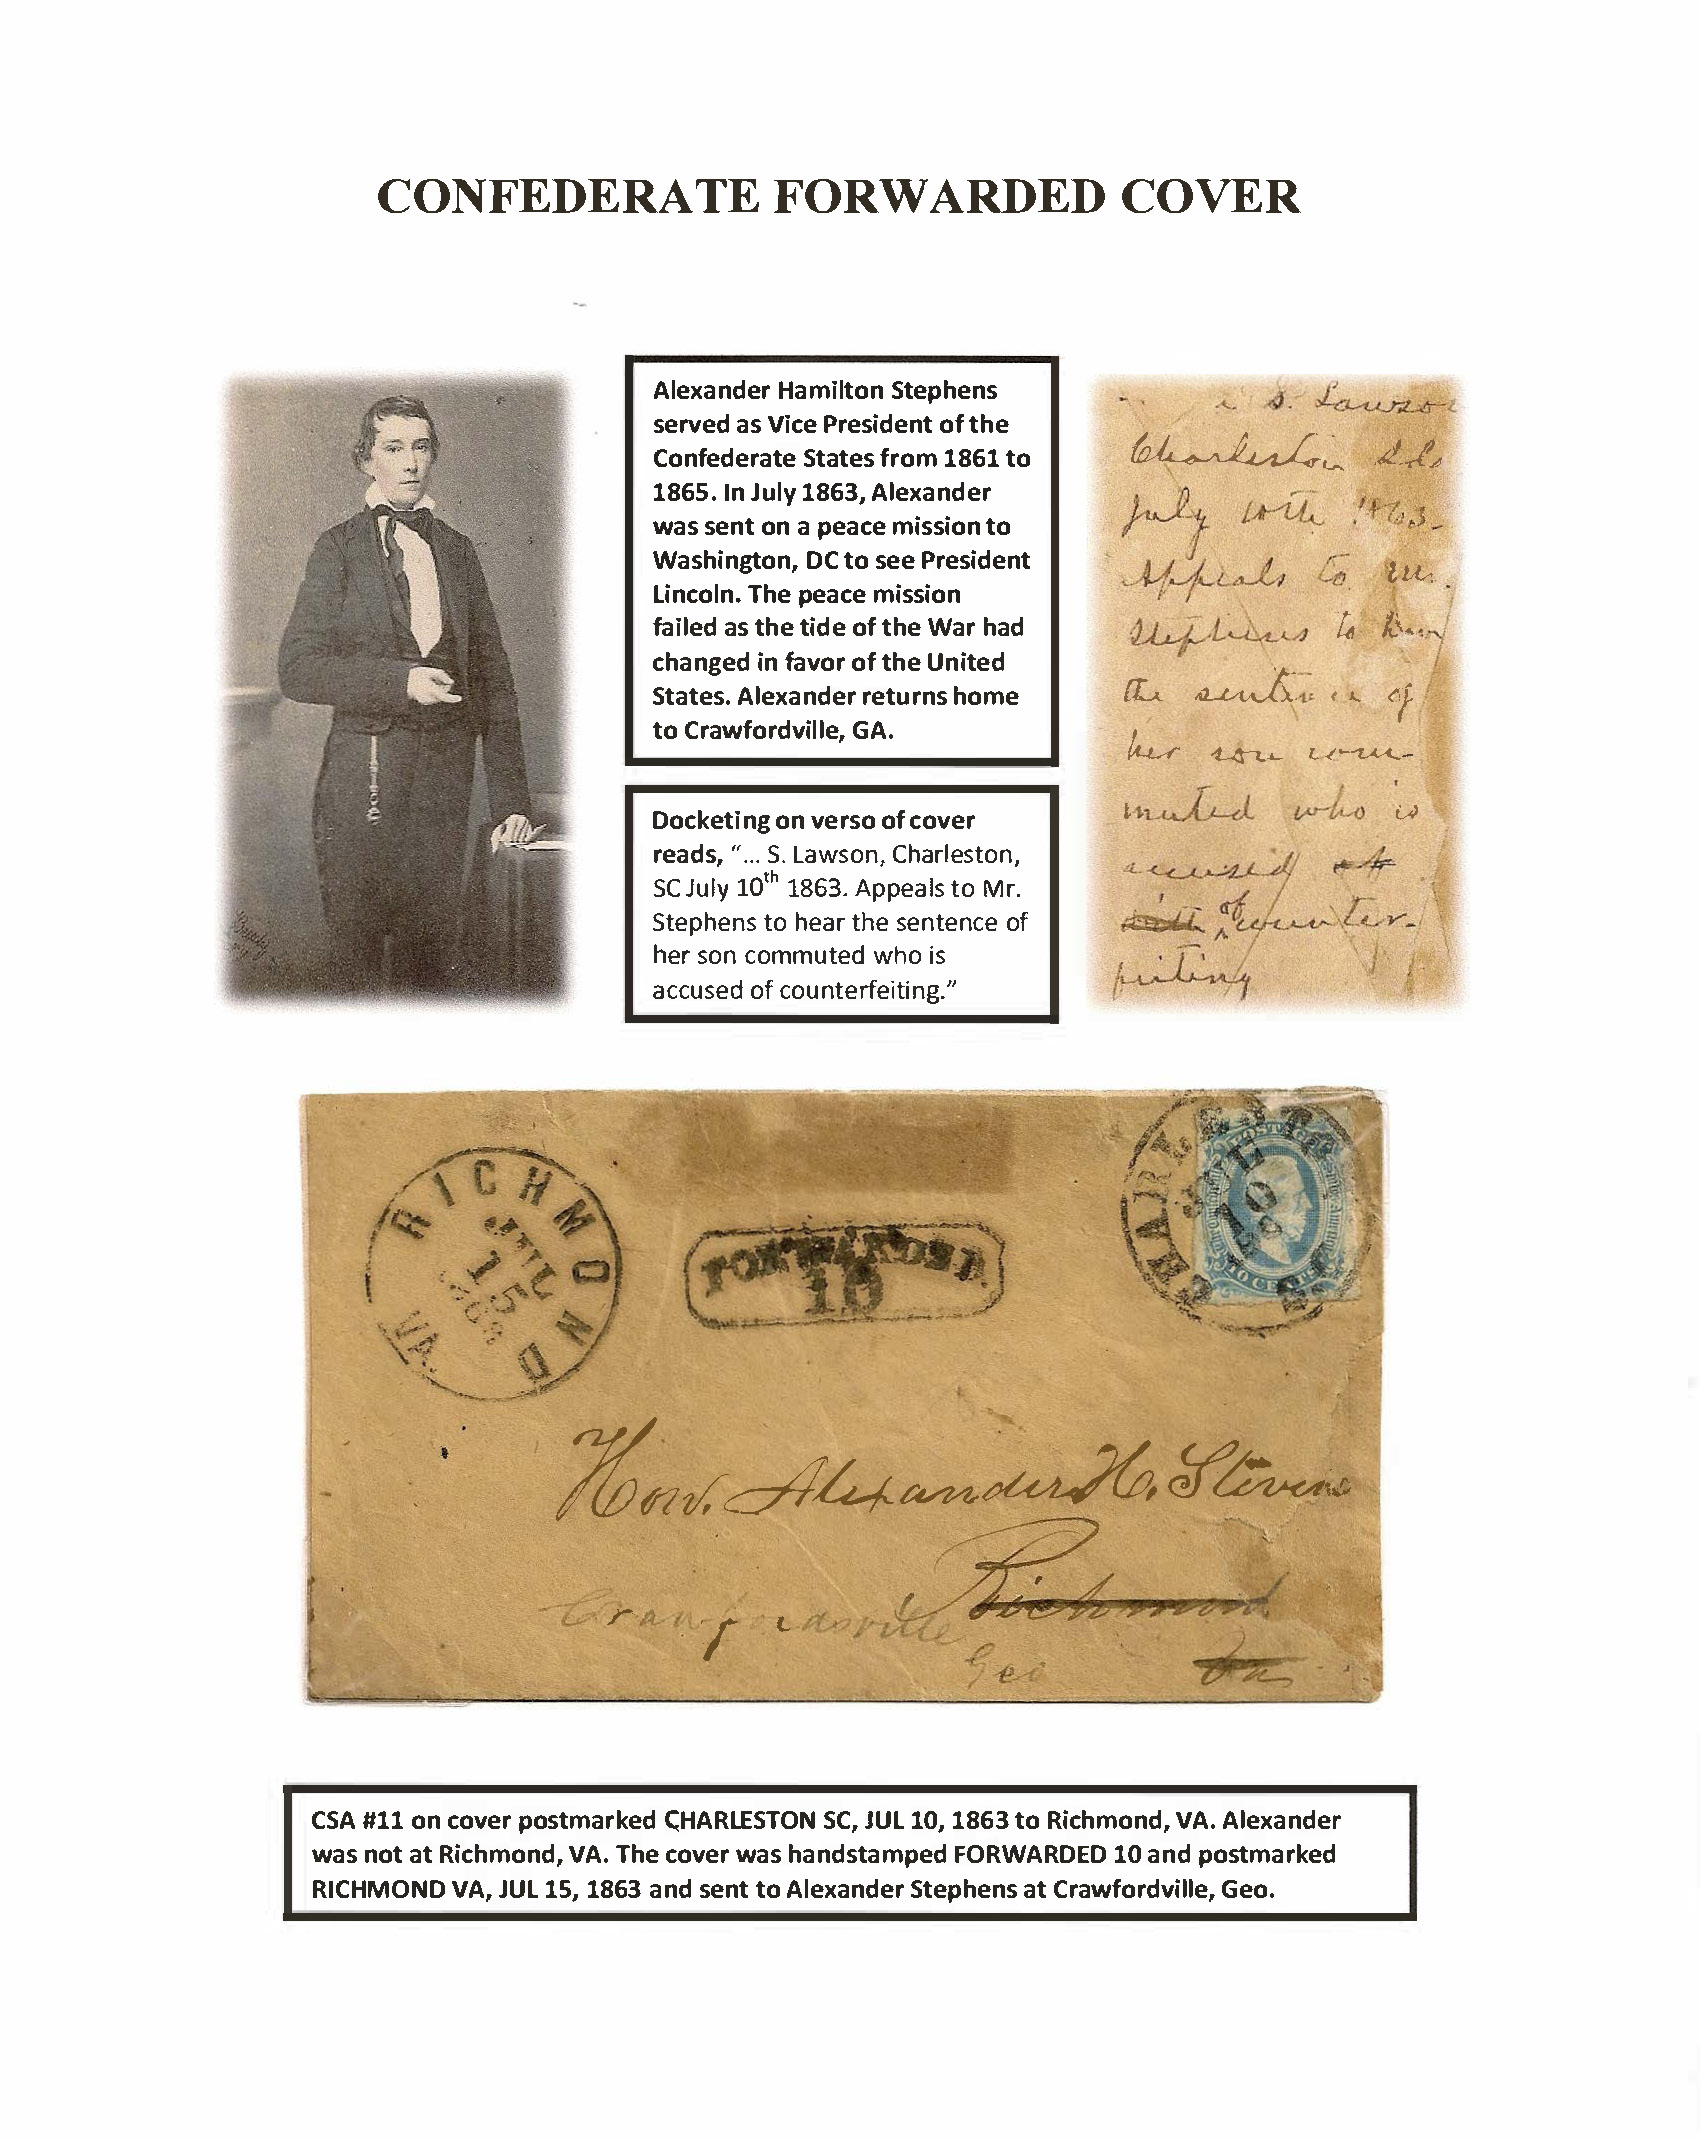 CONFEDERATE FORWARDED COVER
Alexander Hamilton Stephens
served as Vice President of the
Confederate States from 1861 to
1865. In July 1863, Alexander
was sent on a peace mission to
Washington, DC to see President
Lincoln. The peace mission
failed as the tide of the War had
changed in favor of the United
States. Alexander returns home
to Crawfordville, GA.
Docketing on verso of cover
reads, “... S. Lawson, Charleston,
SC July 10th 1863. Appeals to Mr.
Stephens to hear the sentence of
her son commuted who is
accused of counterfeiting.”
S. Lawson
Charleston
July 10th 1863-
Appeals to Mr.
Stephens to
the sentence of
her son com-
muted who is
accused
of counter-
feiting
RICHMOND VA.
JUL
15
1863
FORWARDED.
10
CHARLESTON
JUL
10
POSTAGE
TEN CENTS
Hon. Alexander H. Stevens
Richmond
Va
Crawfordsville
Geo
CSA #11 on cover postmarked CHARLESTON SC, JUL 10, 1863 to Richmond, VA. Alexander
was not at Richmond, VA. The cover was handstamped FORWARDED 10 and postmarked
RICHMOND VA, JUL 15, 1863 and sent to Alexander Stephens at Crawfordville, Geo.